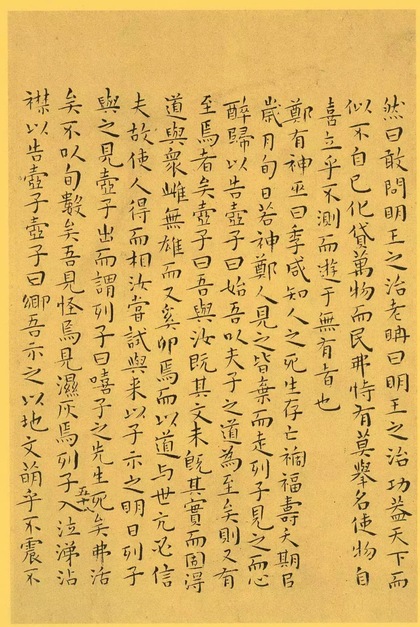 然曰敢問明王之治老聃曰明王之治功蓋天下而
似不自己化貸萬物而民弗恃有莫舉名使物自
喜立乎不測而遊于無有者也
鄭有神巫曰季咸知人之死生存亡禍福壽夭期㠯
歲月旬日若神鄭人見之皆棄而走列子見之而心
醉歸以告壺子曰始吾以夫子之道為至矣則又有
至焉者矣壺子曰吾與汝既其文未既其實而固得
道與衆雌無雄而又奚卵焉而以道与世亢必信
夫故使人得而相汝嘗試與来以子示之明日列子
與之見壺子出而謂列子曰嘻子之先生死矣弗活
矣不以旬數矣吾見怪焉見濕灰焉列子入泣涕沾
襟以告壺子壺子曰鄉吾示之以地文萌乎不震不